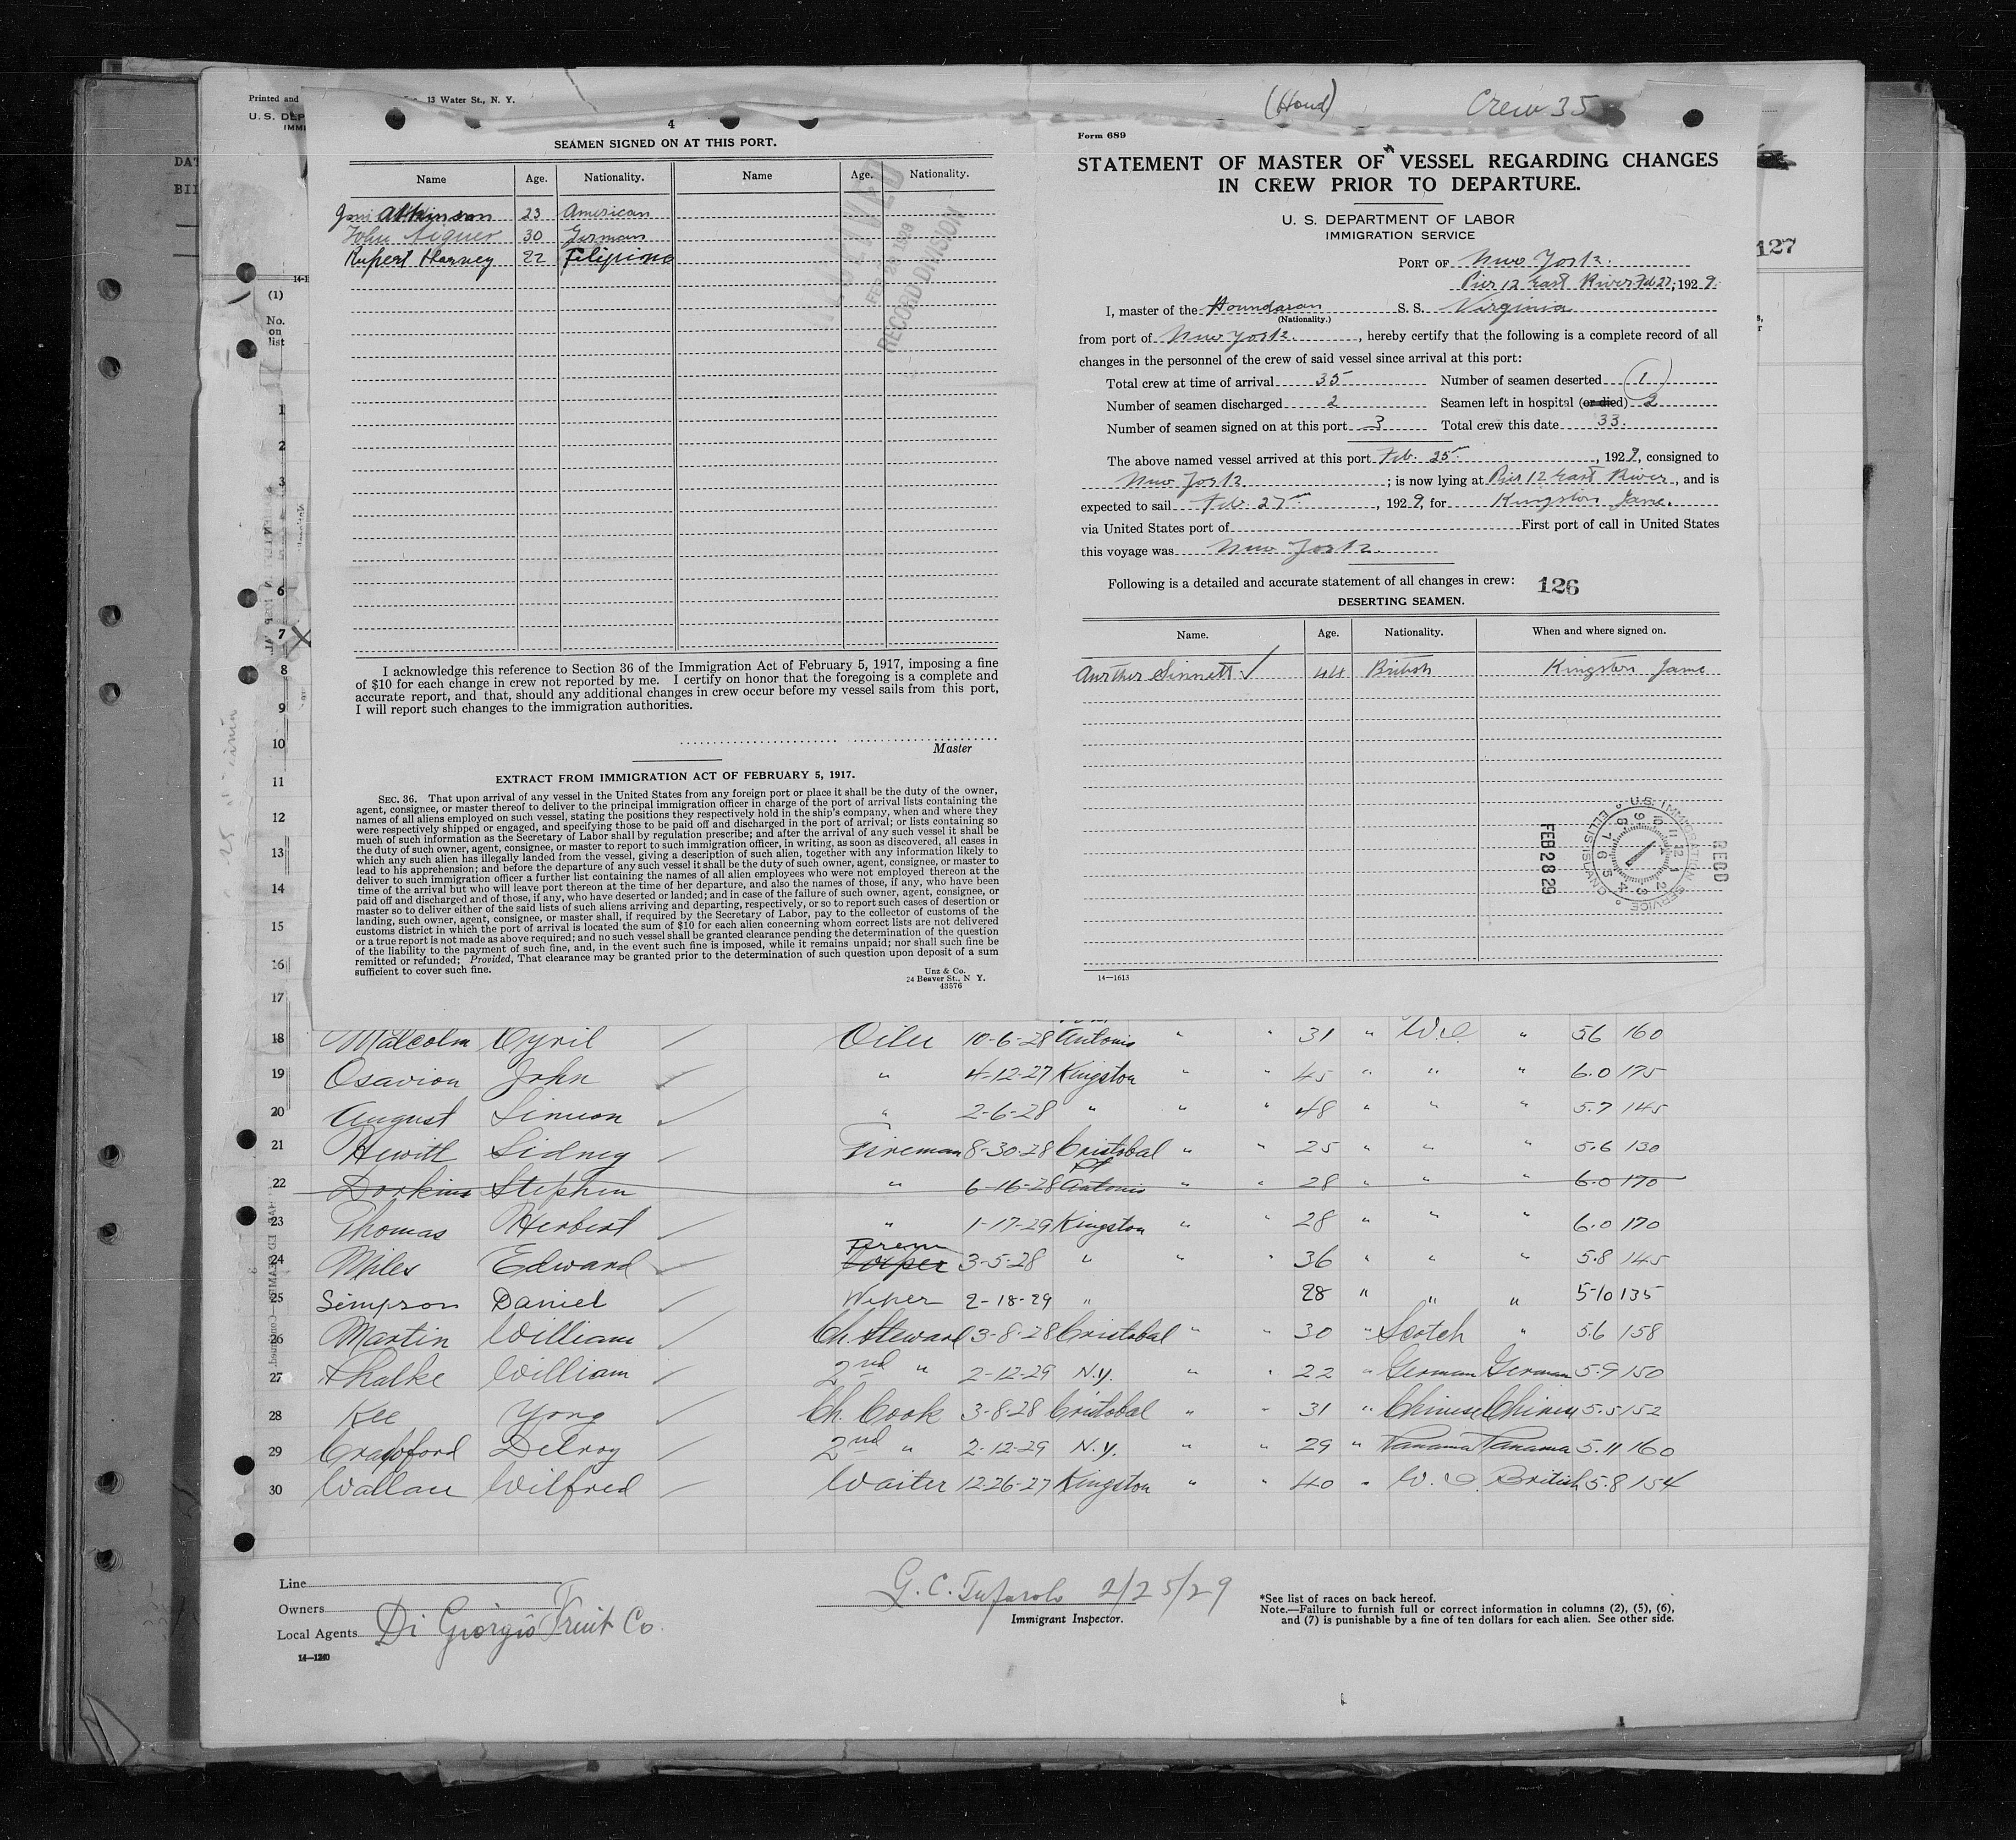 Printed and
13 Water St., N. Y.
U. S. DEP
IMMI
4
SEAMEN SIGNED ON AT THIS PORT.
Name Age. Nationality. Name Age. Nationality.
Atkinson 23 American
John 30 German
Rupert Harvey 22 Filipino
RECORD DIVISION
I acknowledge this reference to Section 36 of the Immigration Act of February 5, 1917, imposing a fine
of $10 for each change in crew not reported by me. I certify on honor that the foregoing is a complete and
accurate report, and that, should any additional changes in crew occur before my vessel sails from this port,
I will report such changes to the immigration authorities.
Master
EXTRACT FROM IMMIGRATION ACT OF FEBRUARY 5, 1917.
SEC. 36. That upon arrival of any vessel in the United States from any foreign port or place it shall be the duty of the owner,
agent, consignee, or master thereof to deliver to the principal immigration officer in charge of the port of arrival lists containing the
names of all aliens employed on such vessel, stating the positions they respectively hold in the ship's company, when and where they
were respectively shipped or engaged, and specifying those to be paid off and discharged in the port of arrival; or lists containing so
much of such information as the Secretary of Labor shall by regulation prescribe; and after the arrival of any such vessel it shall be
the duty of such owner, agent, consignee, or master to report to such immigration officer, in writing, as soon as discovered, all cases in
which any such alien has illegally landed from the vessel, giving a description of such alien, together with any information likely to
lead to his apprehension; and before the departure of any such vessel it shall be the duty of such owner, agent, consignee, or master to
deliver to such immigration officer a further list containing the names of all alien employees who were not employed thereon at the
time of the arrival but who will leave port thereon at the time of her departure, and also the names of those, if any, who have been
paid off and discharged and of those, if any, who have deserted or landed; and in case of the failure of such owner, agent, consignee, or
master so to deliver either of the said lists of such aliens arriving and departing, respectively, or so to report such cases of desertion or
landing, such owner, agent, consignee, or master shall, if required by the Secretary of Labor, pay to the collector of customs of the
customs district in which the port of arrival is located the sum of $10 for each alien concerning whom correct lists are not delivered
or a true report is not made as above required; and no such vessel shall be granted clearance pending the determination of the question
of the liability to the payment of such fine, and, in the event such fine is imposed, while it remains unpaid; nor shall such fine be
remitted or refunded; Provided, That clearance may be granted prior to the determination of such question upon deposit of a sum
sufficient to cover such fine.
Unz & Co.
24 Beaver St., N Y.
43576
(Hond) Crew 35
Form 689
STATEMENT OF MASTER OF VESSEL REGARDING CHANGES
IN CREW PRIOR TO DEPARTURE.
U. S. DEPARTMENT OF LABOR
IMMIGRATION SERVICE
PORT OF New York.
Pier 12 East River Feb 27, 1929.
I, master of the Houndaran S. S. Virginia
(Nationality.)
from port of New York., hereby certify that the following is a complete record of all
changes in the personnel of the crew of said vessel since arrival at this port:
Total crew at time of arrival 35 Number of seamen deserted 1
Number of seamen discharged 2 Seamen left in hospital (or died) 2
Number of seamen signed on at this port 3 Total crew this date 33.
The above named vessel arrived at this port Feb. 25th, 1929, consigned to
New York; is now lying at Pier 12 East River, and is
expected to sail Feb 27th, 1929, for Kingston Jama.
via United States port of First port of call in United States
this voyage was New York.
Following is a detailed and accurate statement of all changes in crew: 126
DESERTING SEAMEN.
Name. Age. Nationality. When and where signed on.
Aurther Sinnett ✓ 44 British Kingston Jama
U.S. IMMIGRATION SERVICE ELLIS ISLAND
FEB 28 29
RECD
14—1613
127
DAT
BII
(1)
No.
on
list
1
2
3
6
7
8
9
10
11
12
13
14
15
16
17
18 Malcolm Cyril ✓ Oiler 10-6-28 Antonio " " 31 " W.I. " 5.6 160
19 Osavion John ✓ " 4-12-27 Kingston " " 45 " " " 6.0 175
20 August Simeon ✓ " 2-6-28 " " " 48 " " " 5.7 145
21 Hewitt Sidney ✓ Fireman 8-30-28 Cristobal " " 25 " " " 5.6 130
22 Dorkins Stephen " 6-16-28 Pt Antonio " " 28 " " " 6.0 170
23 Thomas Herbert ✓ " 1-17-29 Kingston " " 28 " " " 6.0 170
24 Miles Edward ✓ Firem 3-5-28 " " " 36 " " " 5.8 145
25 Simpson Daniel ✓ Wiper 2-18-29 " 28 " " " 5-10 135
26 Martin William ✓ Ch. Steward 3-8-28 Cristobal " " 30 " Scotch " 5.6 158
27 Thalke William ✓ 2nd " 2-12-29 N.Y. " " 22 " German German 5.9 150
28 Kee Yong ✓ Ch. Cook 3-8-28 Cristobal " " 31 " Chinese Chinese 5.5 152
29 Crawford Delroy ✓ 2nd " 2-12-29 N.Y. " " 29 " Panama Panama 5.11 160
30 Wallace Wilfred ✓ Waiter 12-26-27 Kingston " " 40 " W.I. British 5.8 154
Line
Owners
Local Agents Di Giorgio Fruit Co.
14—1240
G. C. 2/25/29
Immigrant Inspector.
*See list of races on back hereof.
Note.—Failure to furnish full or correct information in columns (2), (5), (6),
and (7) is punishable by a fine of ten dollars for each alien. See other side.